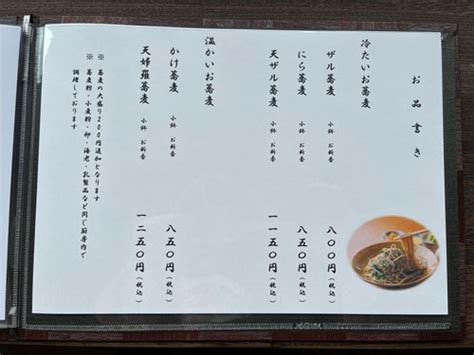 お品書き
冷たいお蕎麦
ザル蕎麦 小鉢 お新香 八〇〇円（税込）
にら蕎麦 小鉢 お新香 八五〇円（税込）
天ザル蕎麦 小鉢 お新香 一一五〇円（税込）
温かいお蕎麦
かけ蕎麦 小鉢 お新香 八五〇円（税込）
天婦羅蕎麦 小鉢 お新香 一二五〇円（税込）
※ 蕎麦の大盛り200円追加となります
※ 蕎麦粉・小麦粉・卵・海老・乳製品など同じ厨房内で
調理しております